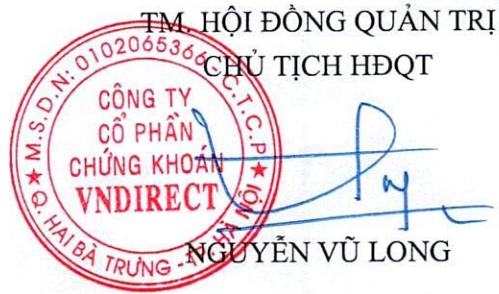 TM. HỘI ĐỒNG QUẢN TRỊ
CHỦ TỊCH HĐQT
M.S.D.N: 0102065366-C.T.C.P
CÔNG TY
CỔ PHẦN
CHỨNG KHOÁN
VNDIRECT
Q. HAI BÀ TRƯNG - TP. HÀ NỘI
NGUYỄN VŨ LONG